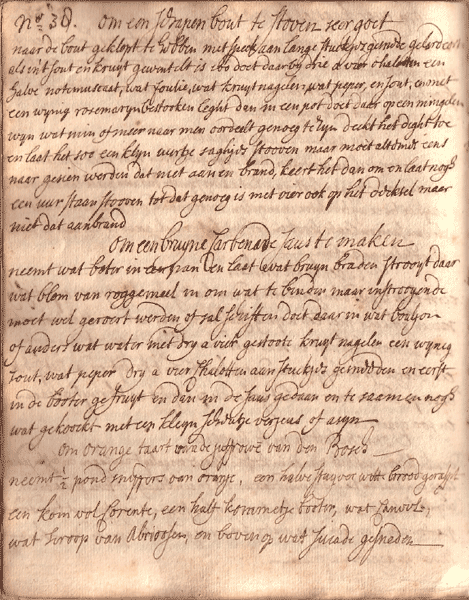 No. 30. om een schapen bout te stoven seer goet
naar de bout geklopt te hebben met speck aan lange stuckjes gesnede gelardeert
als in't sout en kruyt gewentelt is soo doet daar by drie a vier chalotten een
halve notemuscaat, wat foulie, wat kruyt nagelen, wat peper, en sout, en met
een wynig rosemaryn bestooken leght dan in een pot doet daar op een mingelen
wyn wat min of meer naar men oordeelt genoeg te syn deckt het dight toe
en laat het soo een kleyn uurtje sagtjes stooven maar moet altemets eens
naar gesien werden dat niet aan en brand, keert het dan om en laat nogh
een uur staan stooven tot dat genoeg is met vier ook op het decksel maar
niet dat aanbrand
om een bruyne Carbenade saus te maken
neemt wat boter in een pan en laat wat bruyn braden strooyt daar
wat blom van roggemeel in om wat te binden maar instrooyende
moet wel geroert werden of sal schiften doet daar in wat bouljon
of anders wat water met dry a vier gestoote kruyt nagelen een wynig
sout, wat peper dry a vier chalotten aan stuckjes gesnedden en eerst
in de booter gefruyt en dan in de saus gedaan en te saamen nogh
wat gekoockt met een kleyn scheutje verjeus of asyn
om orange taart van de juffrouw van den Bosch
neemt ½ pond snippers van oranje, een halve stuyver witte brood geraspt
een kom vol Corente, een half kommetje booter, wat Caneel,
wat siroop van Abricosen, en boven op wat sucade gesneden